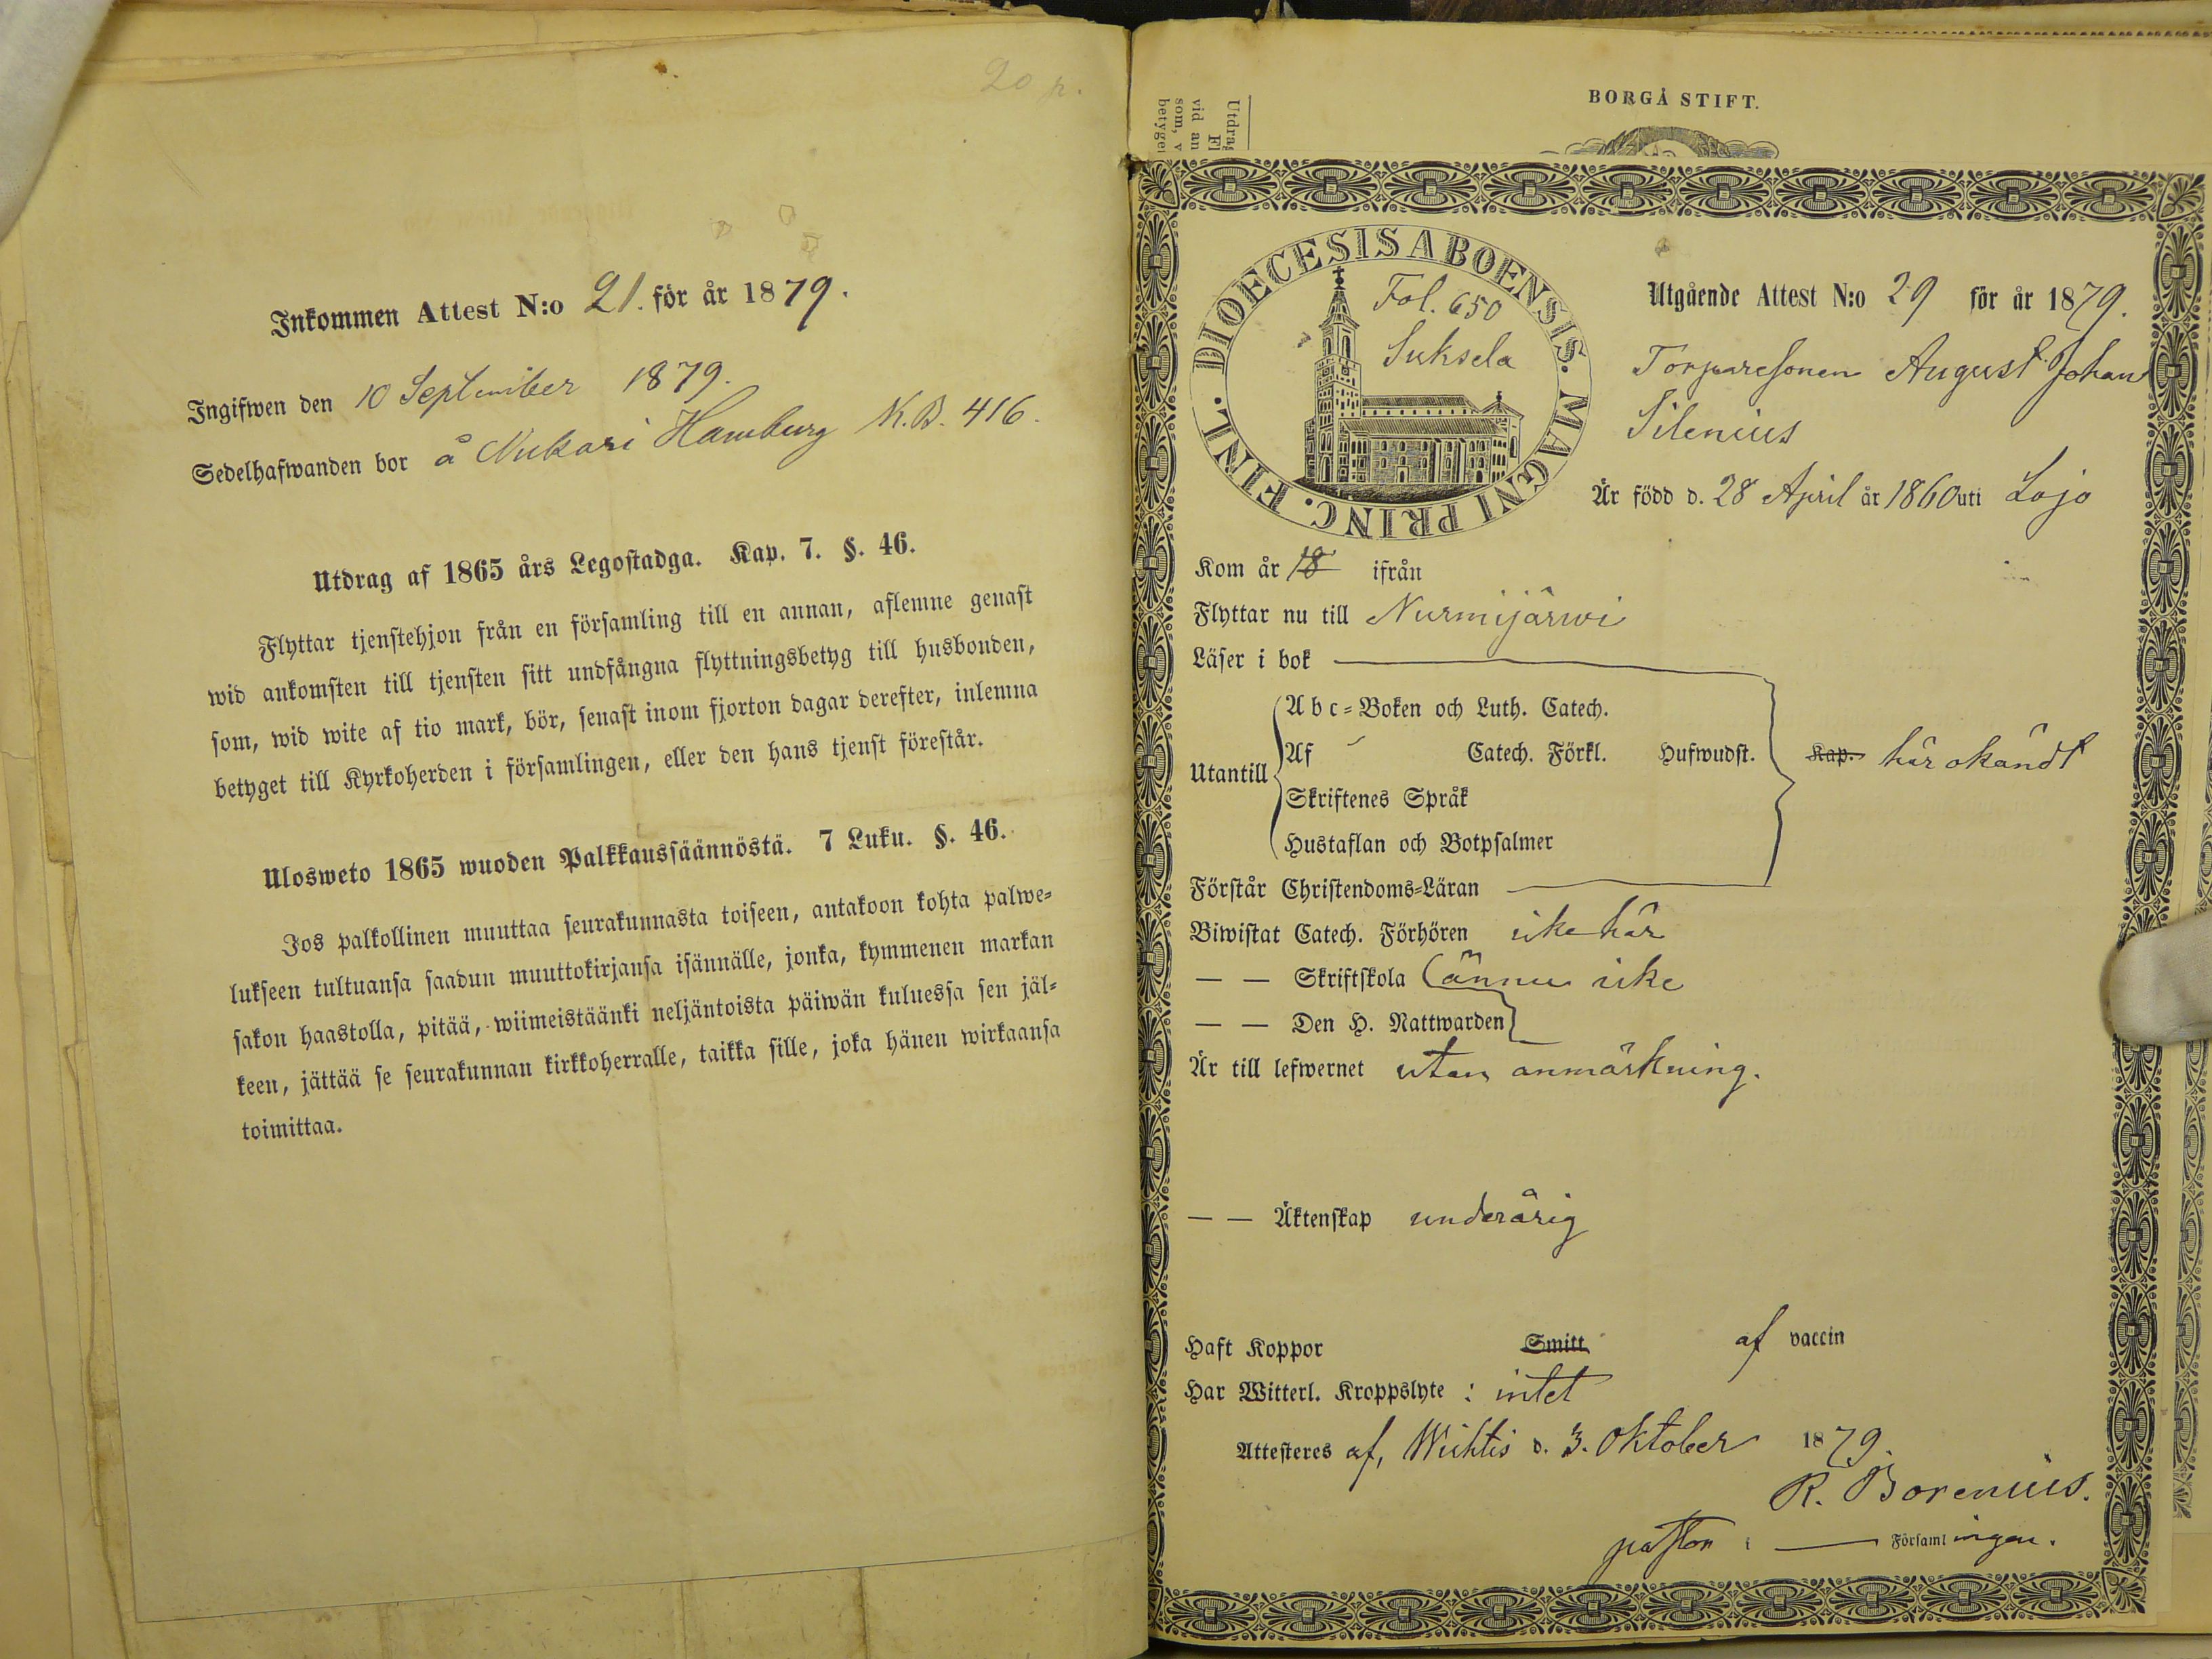 20 p.
Inkommen Attest N:o 21. för år 1879.
Ingifwen den 10 September 1879.
Sedelhafwanden bor å Nukari Hamburg K.B. 416.
Utdrag af 1865 års Legostadga. Kap. 7. §. 46.
Flyttar tjenstehjon från en församling till en annan, aflemne genast
wid ankomsten till tjensten sitt undfångna flyttningsbetyg till husbonden,
som, wid wite af tio mark, bör, senast inom fjorton dagar derefter, inlemna
betyget till Kyrkoherden i församlingen, eller den hans tjenst förestår.
Ulosweto 1865 wuoden Palkkaussäännöstä. 7 Luku. §. 46.
Jos palkollinen muuttaa seurakunnasta toiseen, antakoon kohta palwe-
lukseen tultuansa saadun muuttokirjansa isännälle, jonka, kymmenen markan
sakon haastolla, pitää, wiimeistäänki neljäntoista päiwän kuluessa sen jäl-
keen, jättää se seurakunnan kirkkoherralle, taikka sille, joka hänen wirkaansa
toimittaa.
BORGÅ STIFT.
Utdrag
Fl
vid an
som, v
betyget
DIOECESIS ABOENSIS. MAGNI PRINC. FINL.
Fol. 650
Suksela
Utgående Attest N:o 29 för år 1879.
Torparesonen August Johan
Silenius
Är född d. 28 April år 1860 uti Lojo
Kom år 18 ifrån
Flyttar nu till Nurmijärwi
Läser i bok
Utantill
Abc-Boken och Luth. Catech.
Af Catech. Förkl. Hufwudst. Kap. här okändt
Skriftenes Språk
Hustaflan och Botpsalmer
Förstår Christendoms-Läran
Biwistat Catech. Förhören icke här
— — Skriftskola ännu icke
— — Den H. Nattwarden
Är till lefwernet utan anmärkning.
— — Äktenskap underårig
Haft Koppor Smitt af vaccin
Har Witterl. Kroppslyte : intet
Attesteres af, Wichtis d. 3. Oktober 1879.
R. Borenius.
pastor i — Församlingen.